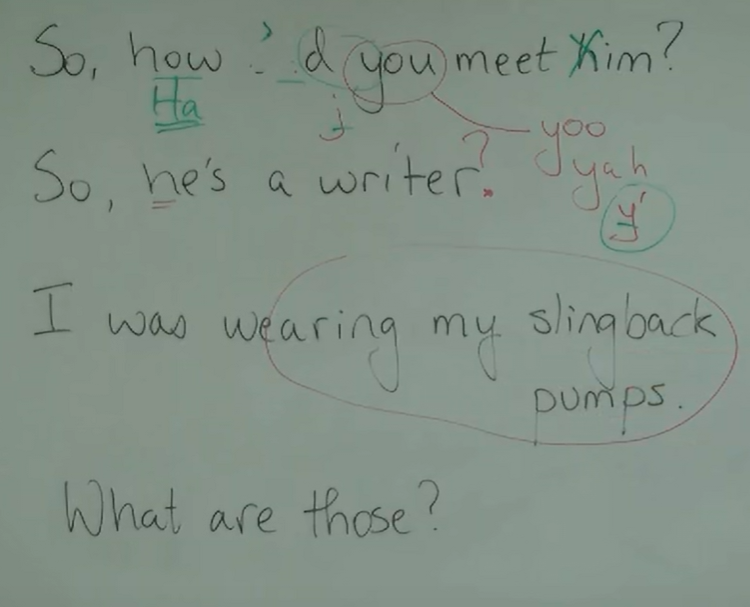 So, how 'd you meet Kim?
Ha
j
yoo
So, he's a writer?.
yah
y'
I was wearing my slingback
pumps.
What are those?